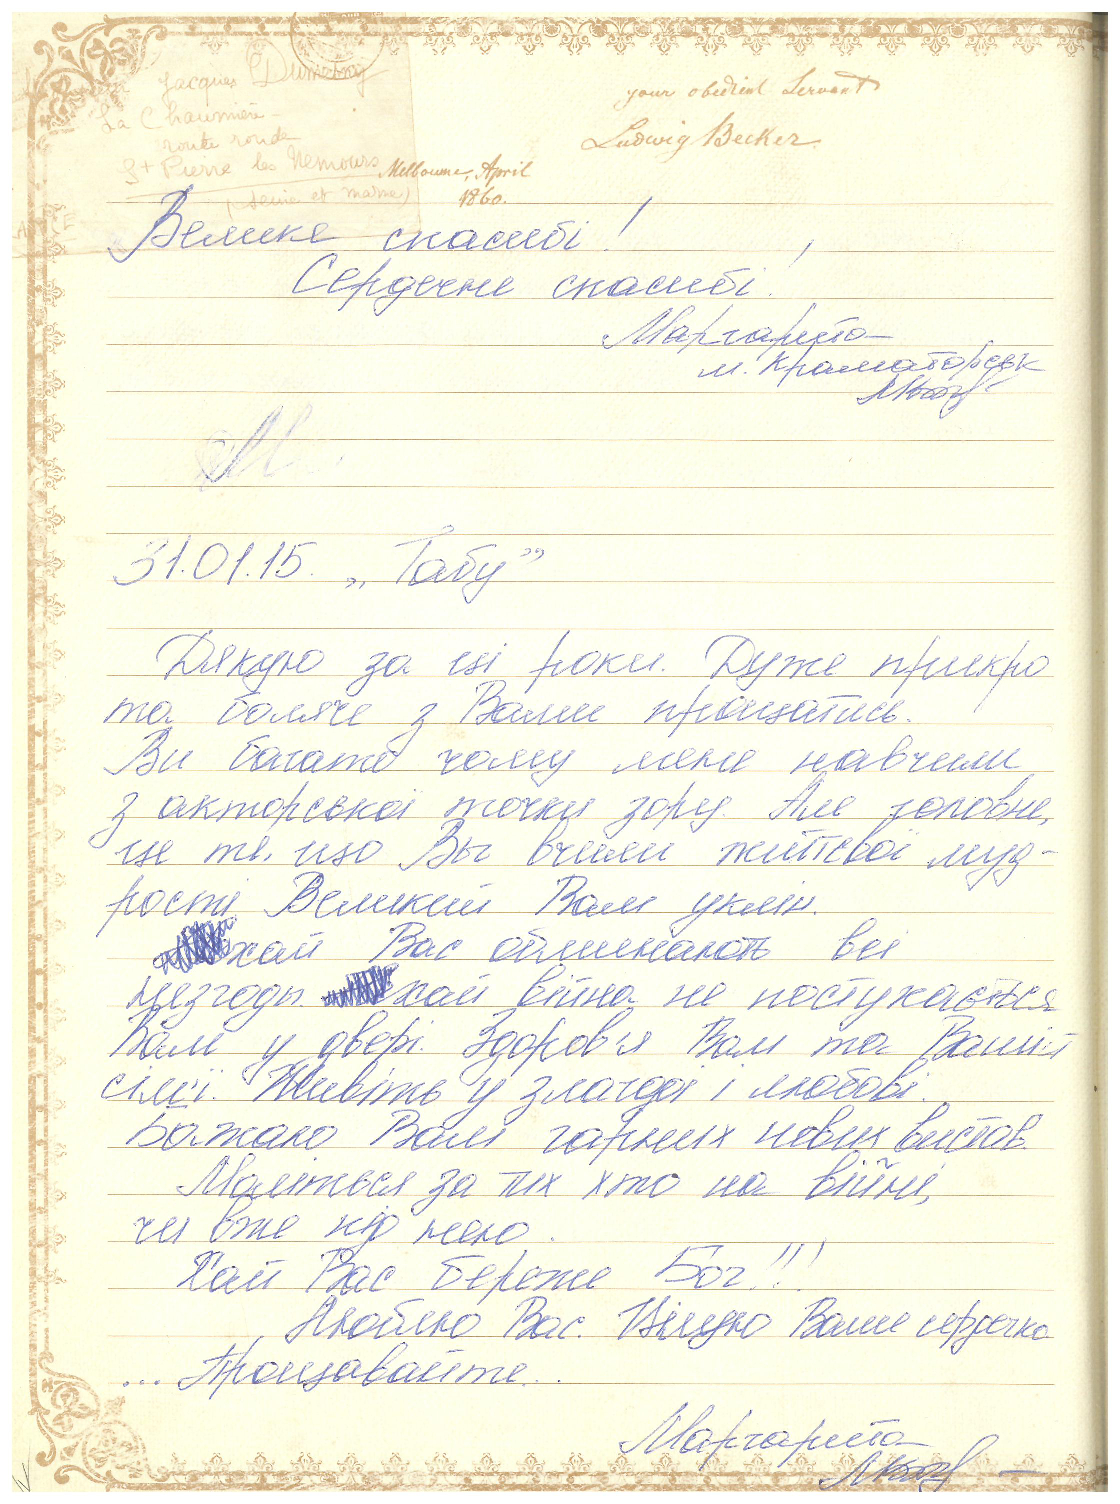 Jacques Dumesny
La Chaumière
route ronde
St Pierre les Nemours
(Seine et Marne)
your obedient Servant
Ludwig Becker
Melbourne, April
1860.
Велике спасибі!
Сердечне спасибі!
Маргарита
м. Краматорськ
31.01.15. „Табу”
Дякую за ці роки. Дуже прикро
та боляче з Вами прощатись.
Ви багато чому мене навчили
з акторської точки зору. Але головне,
це те, що Вы вчили життєвої муд-
рості. Великий Вам уклін.
хай Вас обминають всі
незгоди. хай війна не постукається
Вам у двері. Здоров'я Вам та Вашій
сім'ї. Живіть у злагоді і любові.
Бажаю Вам гарних нових вистав.
Моліться за тих хто на війні,
чи вже під нею.
Хай Вас береже Бог!!!
Люблю Вас. Цілую Ваше сердечко
... Прощавайте...
Маргарита